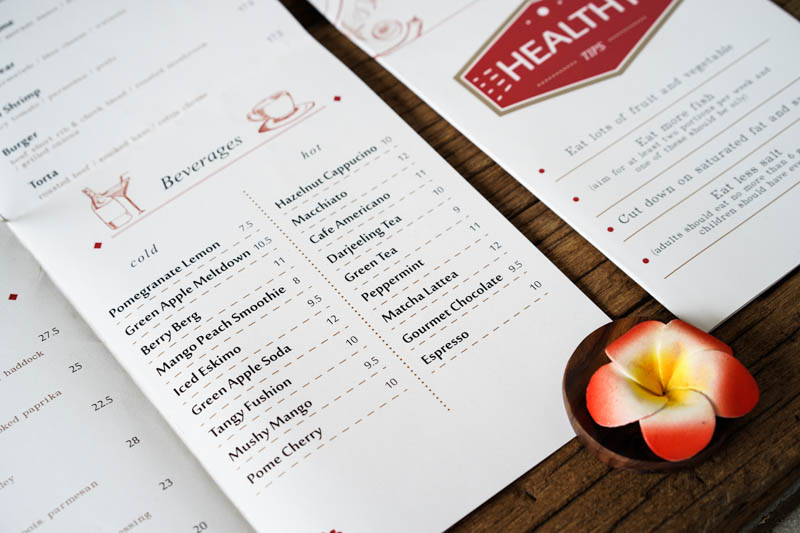 Shrimp
Burger
beef short rib & chuck blend / roasted mushroom
grilled onions
Torta
roasted beef / smoked ham / crispy cheese
17.5
Beverages
cold
Pomegranate Lemon 7.5
Green Apple Meltdown 10.5
Berry Berg 11
Mango Peach Smoothie 8
Iced Eskimo 9.5
Green Apple Soda 12
Tangy Fushion 10
Mushy Mango 9.5
Pome Cherry 10
hot
Hazelnut Cappucino 10
Macchiato 12
Cafe Americano 11
Darjeeling Tea 10
Green Tea 9
Peppermint 11
Matcha Lattea 12
Gourmet Chocolate 9.5
Espresso 10
27.5
haddock
25
ked paprika
22.5
28
parmesan
20
HEALTHY
TIPS
Eat lots of fruit and vegetable
Eat more fish
(aim for at least two portions per week and
one of these should be oily)
Cut down on saturated fat and
Eat less salt
(adults should eat no more than 6
children should have